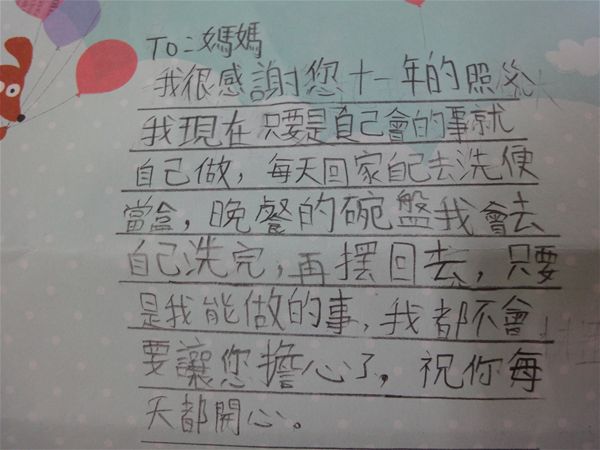 To：媽媽
我很感謝您十一年的照
我現在只要是自己會的事就
自己做，每天回家自己去洗便
當盒，晚餐的碗盤我會去
自己洗完，再擺回去，只要
是我能做的事，我都不會
要讓您擔心了，祝你每
天都開心。